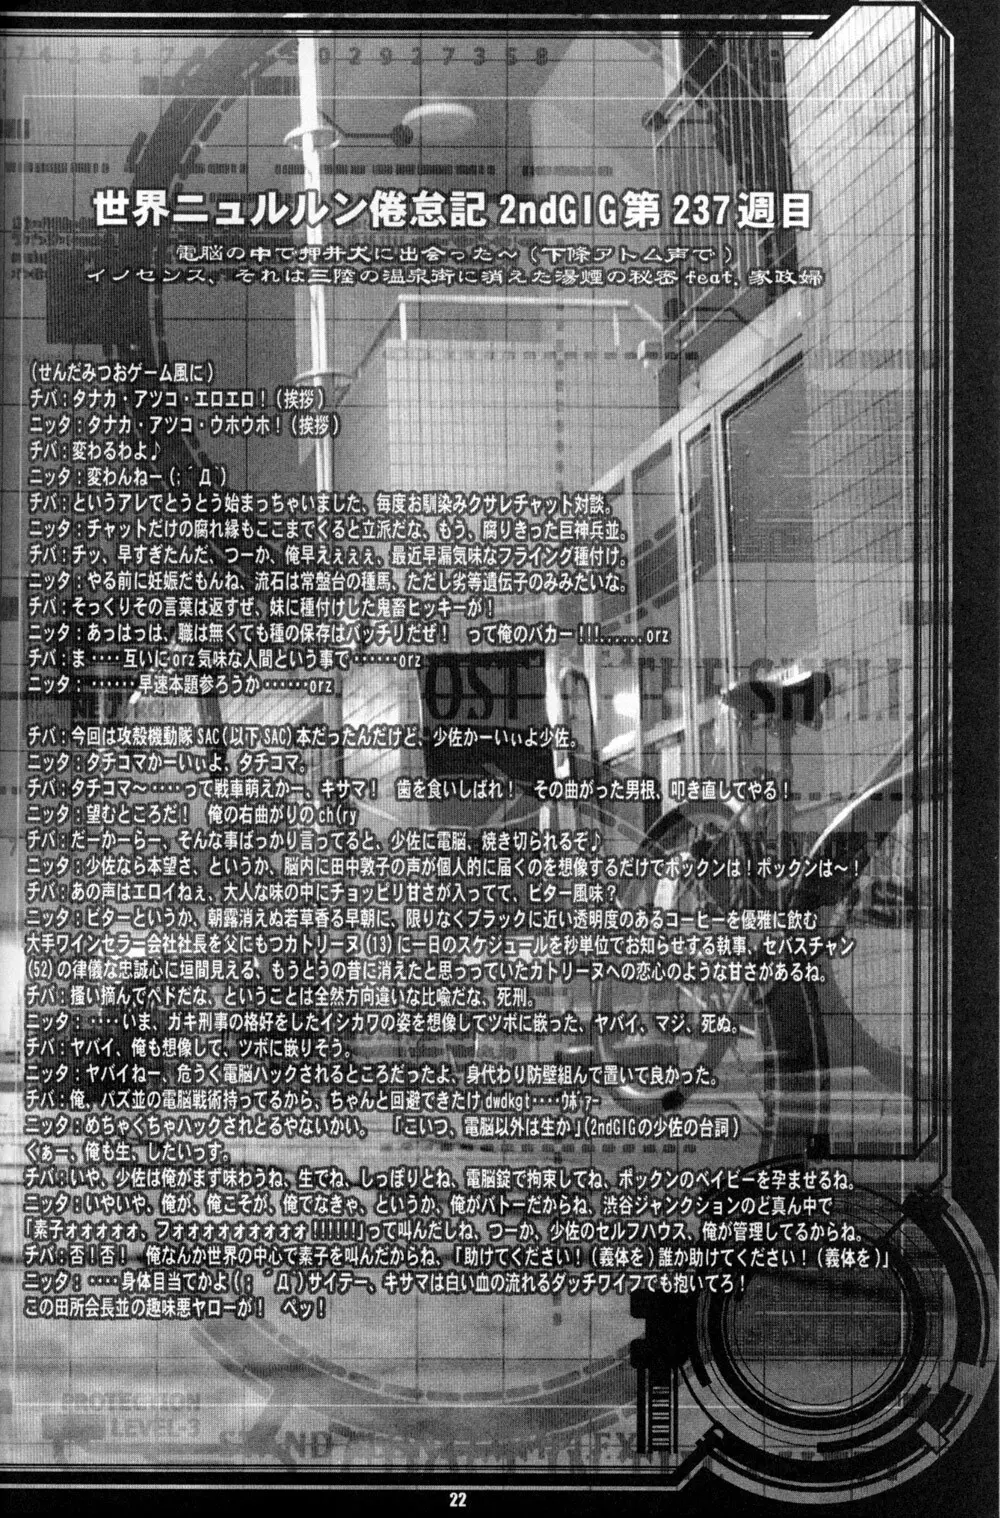 7 4 2 6 1 7
0 2 9 2 7 3 5 8
世界ニュルルン倦怠記 2ndGIG 第 237 週目
電脳の中で押井犬に出会った～(下條アトム声で)
イノセンス、それは三陸の温泉街に消えた湯煙の秘密 feat. 家政婦
(せんだみつおゲーム風に)
チバ：タナカ・アツコ・エロエロ！(挨拶)
ニッタ：タナカ・アツコ・ウホウホ！(挨拶)
チバ：変わるわよ♪
ニッタ：変わんねー(;´Д`)
チバ：というアレでとうとう始まっちゃいました、毎度お馴染みクサレチャット対談。
ニッタ：チャットだけの腐れ縁もここまでくると立派だな、もう、腐りきった巨神兵並。
チバ：チッ、早すぎたんだ、つーか、俺早えぇぇぇ、最近早漏気味なフライング種付け。
ニッタ：やる前に妊娠だもんね、流石は常盤台の種馬、ただし劣等遺伝子のみみたいな。
チバ：そっくりその言葉は返すぜ、妹に種付けした鬼畜ヒッキーが！
ニッタ：あっはっは、職は無くても種の保存はバッチリだぜ！　って俺のバカー!!!......orz
チバ：ま‥‥互いにorz気味な人間という事で‥‥‥orz
ニッタ：‥‥‥早速本題参ろうか‥‥‥orz
チバ：今回は攻殻機動隊SAC(以下SAC)本だったんだけど、少佐かーいぃよ少佐。
ニッタ：タチコマかーいぃよ、タチコマ。
チバ：タチコマ～‥‥って戦車萌えかー、キサマ！　歯を食いしばれ！　その曲がった男根、叩き直してやる！
ニッタ：望むところだ！　俺の右曲がりのch(ry
チバ：だーかーらー、そんな事ばっかり言ってると、少佐に電脳、焼き切られるぞ♪
ニッタ：少佐なら本望さ、というか、脳内に田中敦子の声が個人的に届くのを想像するだけでボックンは！ボックンは～！
チバ：あの声はエロイねぇ、大人な味の中にチョッピリ甘さが入ってて、ビター風味？
ニッタ：ビターというか、朝露消えぬ若草香る早朝に、限りなくブラックに近い透明度のあるコーヒーを優雅に飲む
大手ワインセラー会社社長を父にもつカトリーヌ(13)に一日のスケジュールを秒単位でお知らせする執事、セバスチャン
(52)の律儀な忠誠心に垣間見える、もうとうの昔に消えたと思っっていたカトリーヌへの恋心のような甘さがあるね。
チバ：掻い摘んでペドだな、ということは全然方向違いな比喩だな、死刑。
ニッタ：‥‥いま、ガキ刑事の格好をしたイシカワの姿を想像してツボに嵌った、ヤバイ、マジ、死ぬ。
チバ：ヤバイ、俺も想像して、ツボに嵌りそう。
ニッタ：ヤバイねー、危うく電脳ハックされるところだったよ、身代わり防壁組んで置いて良かった。
チバ：俺、パズ並の電脳戦術持ってるから、ちゃんと回避できたけdwdkgt‥‥ｳﾎﾞｧｰ
ニッタ：めちゃくちゃハックされとるやないかい。　「こいつ、電脳以外は生か」(2ndGIGの少佐の台詞)
くぁー、俺も生、したいっす。
チバ：いや、少佐は俺がまず味わうね、生でね、しっぽりとね、電脳錠で拘束してね、ボックンのベイビーを孕ませるね。
ニッタ：いやいや、俺が、俺こそが、俺でなきゃ、というか、俺がバトーだからね、渋谷ジャンクションのど真ん中で
「素子ォォォォォ、フォォォォォォォォォ!!!!!!」って叫んだしね、つーか、少佐のセルフハウス、俺が管理してるからね。
チバ：否！否！　俺なんか世界の中心で素子を叫んだからね、「助けてください！(義体を)誰か助けてください！(義体を)」
ニッタ：‥‥身体目当てかよ(;´Д`)サイテー、キサマは白い血の流れるダッチワイフでも抱いてろ！
この田所会長並の趣味悪ヤローが！　ペッ！
PROTECTION
LEVEL-3
22